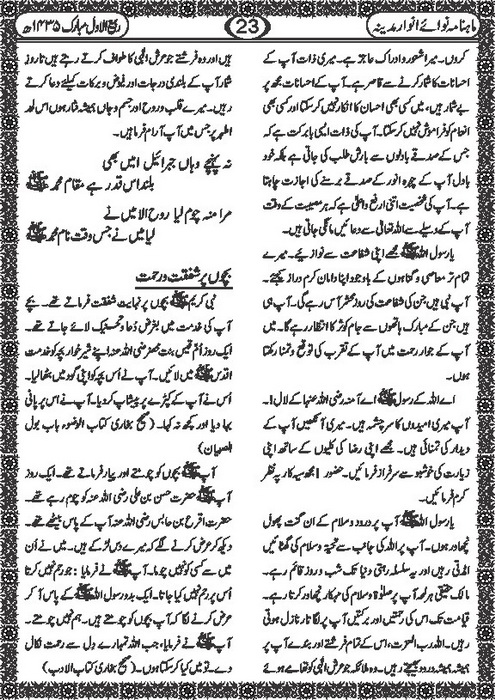 ماہنامہ نوائے انوار مدینہ
23
ربیع الاول مبارک ۱۴۳۵ھ
کروں۔ میرا شعور و ادراک عاجز ہے۔ میری ذات آپ کے
احسانات کا شمار کرنے سے قاصر ہے۔ آپ کے احسانات مجھ پر
بے شمار ہیں، میں کسی بھی احسان کا انکار نہیں کر سکتا اور کسی بھی
انعام کو فراموش نہیں کر سکتا۔ آپ کی ذات ایسی بابرکت ہے کہ
جس کے صدقے بادلوں سے بارش طلب کی جاتی ہے بلکہ خود
بادل آپ کے چہرہ انور کے صدقے برسنے کی اجازت چاہتا
ہے۔ آپ کی شخصیت اتنی ارفع واعلیٰ ہے کہ ہر مصیبت کے وقت
آپ کے وسیلے سے اللہ تعالیٰ سے دعائیں مانگی جاتی ہیں۔
یارسول اللہ ﷺ مجھے اپنی شفاعت سے نوازیئے۔ میرے
تمام تر معاصی و گناہوں کے باوجود اپنا دامان کرم دراز کیجئے۔
آپ نبی ہیں جن کی شفاعت کی روز محشر آس رہے گی۔ آپ ہی
ہیں جن کے مبارک ہاتھوں سے جام کوثر کا انتظار رہے گا۔ میں
آپ کے جوار رحمت میں آپ کے تقرب کی توقع و تمنا رکھتا
ہوں۔
اے اللہ کے رسول ﷺ اے آمنہ رضی اللہ عنہا کے لال!۔
آپ میری امیدوں کا سرچشمہ ہیں۔ میری آنکھیں آپ کے
دیدار کی تمنائی ہیں۔ مجھے اپنی رضا کی کلیوں کے ساتھ اپنی
زیارت کی خوشبو سے سرفراز فرمائیں۔ حضور! مجھ سیہ کار پہ نظر
کرم فرمائیں۔
یارسول اللہ ﷺ آپ پر درود وسلام کے ان گنت پھول
نچھاور ہوں۔ آپ پر اللہ کی جانب سے تحیۃ وسلام کی گھٹائیں
امڈتی رہیں اور یہ سلسلہ رہتی دنیا تک شب و روز قائم رہے۔
مالک حقیقی ہر لمحہ آپ پر صلوٰۃ وسلام کی مہکار نچھاور کرتا رہے۔
قیامت تک اس کی رحمتیں اور برکتیں آپ پر لگاتار نازل ہوتی
رہیں۔ اللہ رب العزت، اس کے تمام فرشتے اور بندے آپ پر
ہمیشہ درود بھیجتے رہیں۔ وہ ملائکہ جو عرش الٰہی کو تھامے ہوئے
ہیں اور وہ فرشتے جو عرش الٰہی کا طواف کرتے رہتے ہیں تا روز
شمار آپ کے بلندی درجات اور فیوض وبرکات کیلئے دعا کرتے
رہیں۔ میرے قلب و روح اور جسم و جاں ہمیشہ نثار ہوں اس لحد
اطہر پر جس میں آپ آرام فرما ہیں۔
نہ پہنچے وہاں جبرائیل امیں بھی
بلند اس قدر ہے مقام محمد ﷺ
مرا منہ چوم لیا روح الامیں نے
لیا میں نے جس وقت نام محمد ﷺ
بچوں پر شفقت و رحمت
نبی کریم ﷺ بچوں پر نہایت شفقت فرماتے تھے۔ بچے
آپ کی خدمت میں بغرض دعا و تحنیک لائے جاتے تھے۔
ایک روز اُم قیس بنت محصن رضی اللہ عنہ اپنے شیر خوار بچہ کو خدمت
اقدس ﷺ میں لائیں۔ آپ نے اُس بچہ کو اپنی گود میں بٹھا لیا۔
اُس نے آپ کے کپڑے پر پیشاب کر دیا۔ آپ نے اس پر پانی
بہا دیا اور کچھ نہ کہا۔ (صحیح بخاری کتاب الوضوء باب بول
الصبیان)
آپ ﷺ بچوں کو چومتے اور پیار فرماتے تھے۔ ایک روز
آپ ﷺ حضرت حسن بن علی رضی اللہ عنہ کو چوم رہے تھے۔
حضرت اقرع بن حابس رضی اللہ عنہ آپ کے پاس بیٹھے تھے۔
دیکھ کر عرض کرنے لگے کہ میرے دس لڑکے ہیں۔ میں نے اُن
میں سے کسی کو نہیں چوما۔ آپ ﷺ نے فرمایا: جو رحم نہیں کرتا
اُس پر رحم نہیں کیا جاتا۔ ایک بدو رسول اللہ ﷺ کے پاس آ کر
عرض کرنے لگا کہ آپ بچوں کو چومتے ہیں۔ ہم نہیں چومتے۔
آپ ﷺ نے فرمایا، جب اللہ تمہارے دِل سے رحمت نکال
دے تو میں کیا کر سکتا ہوں۔ (صحیح بخاری کتاب الادب)